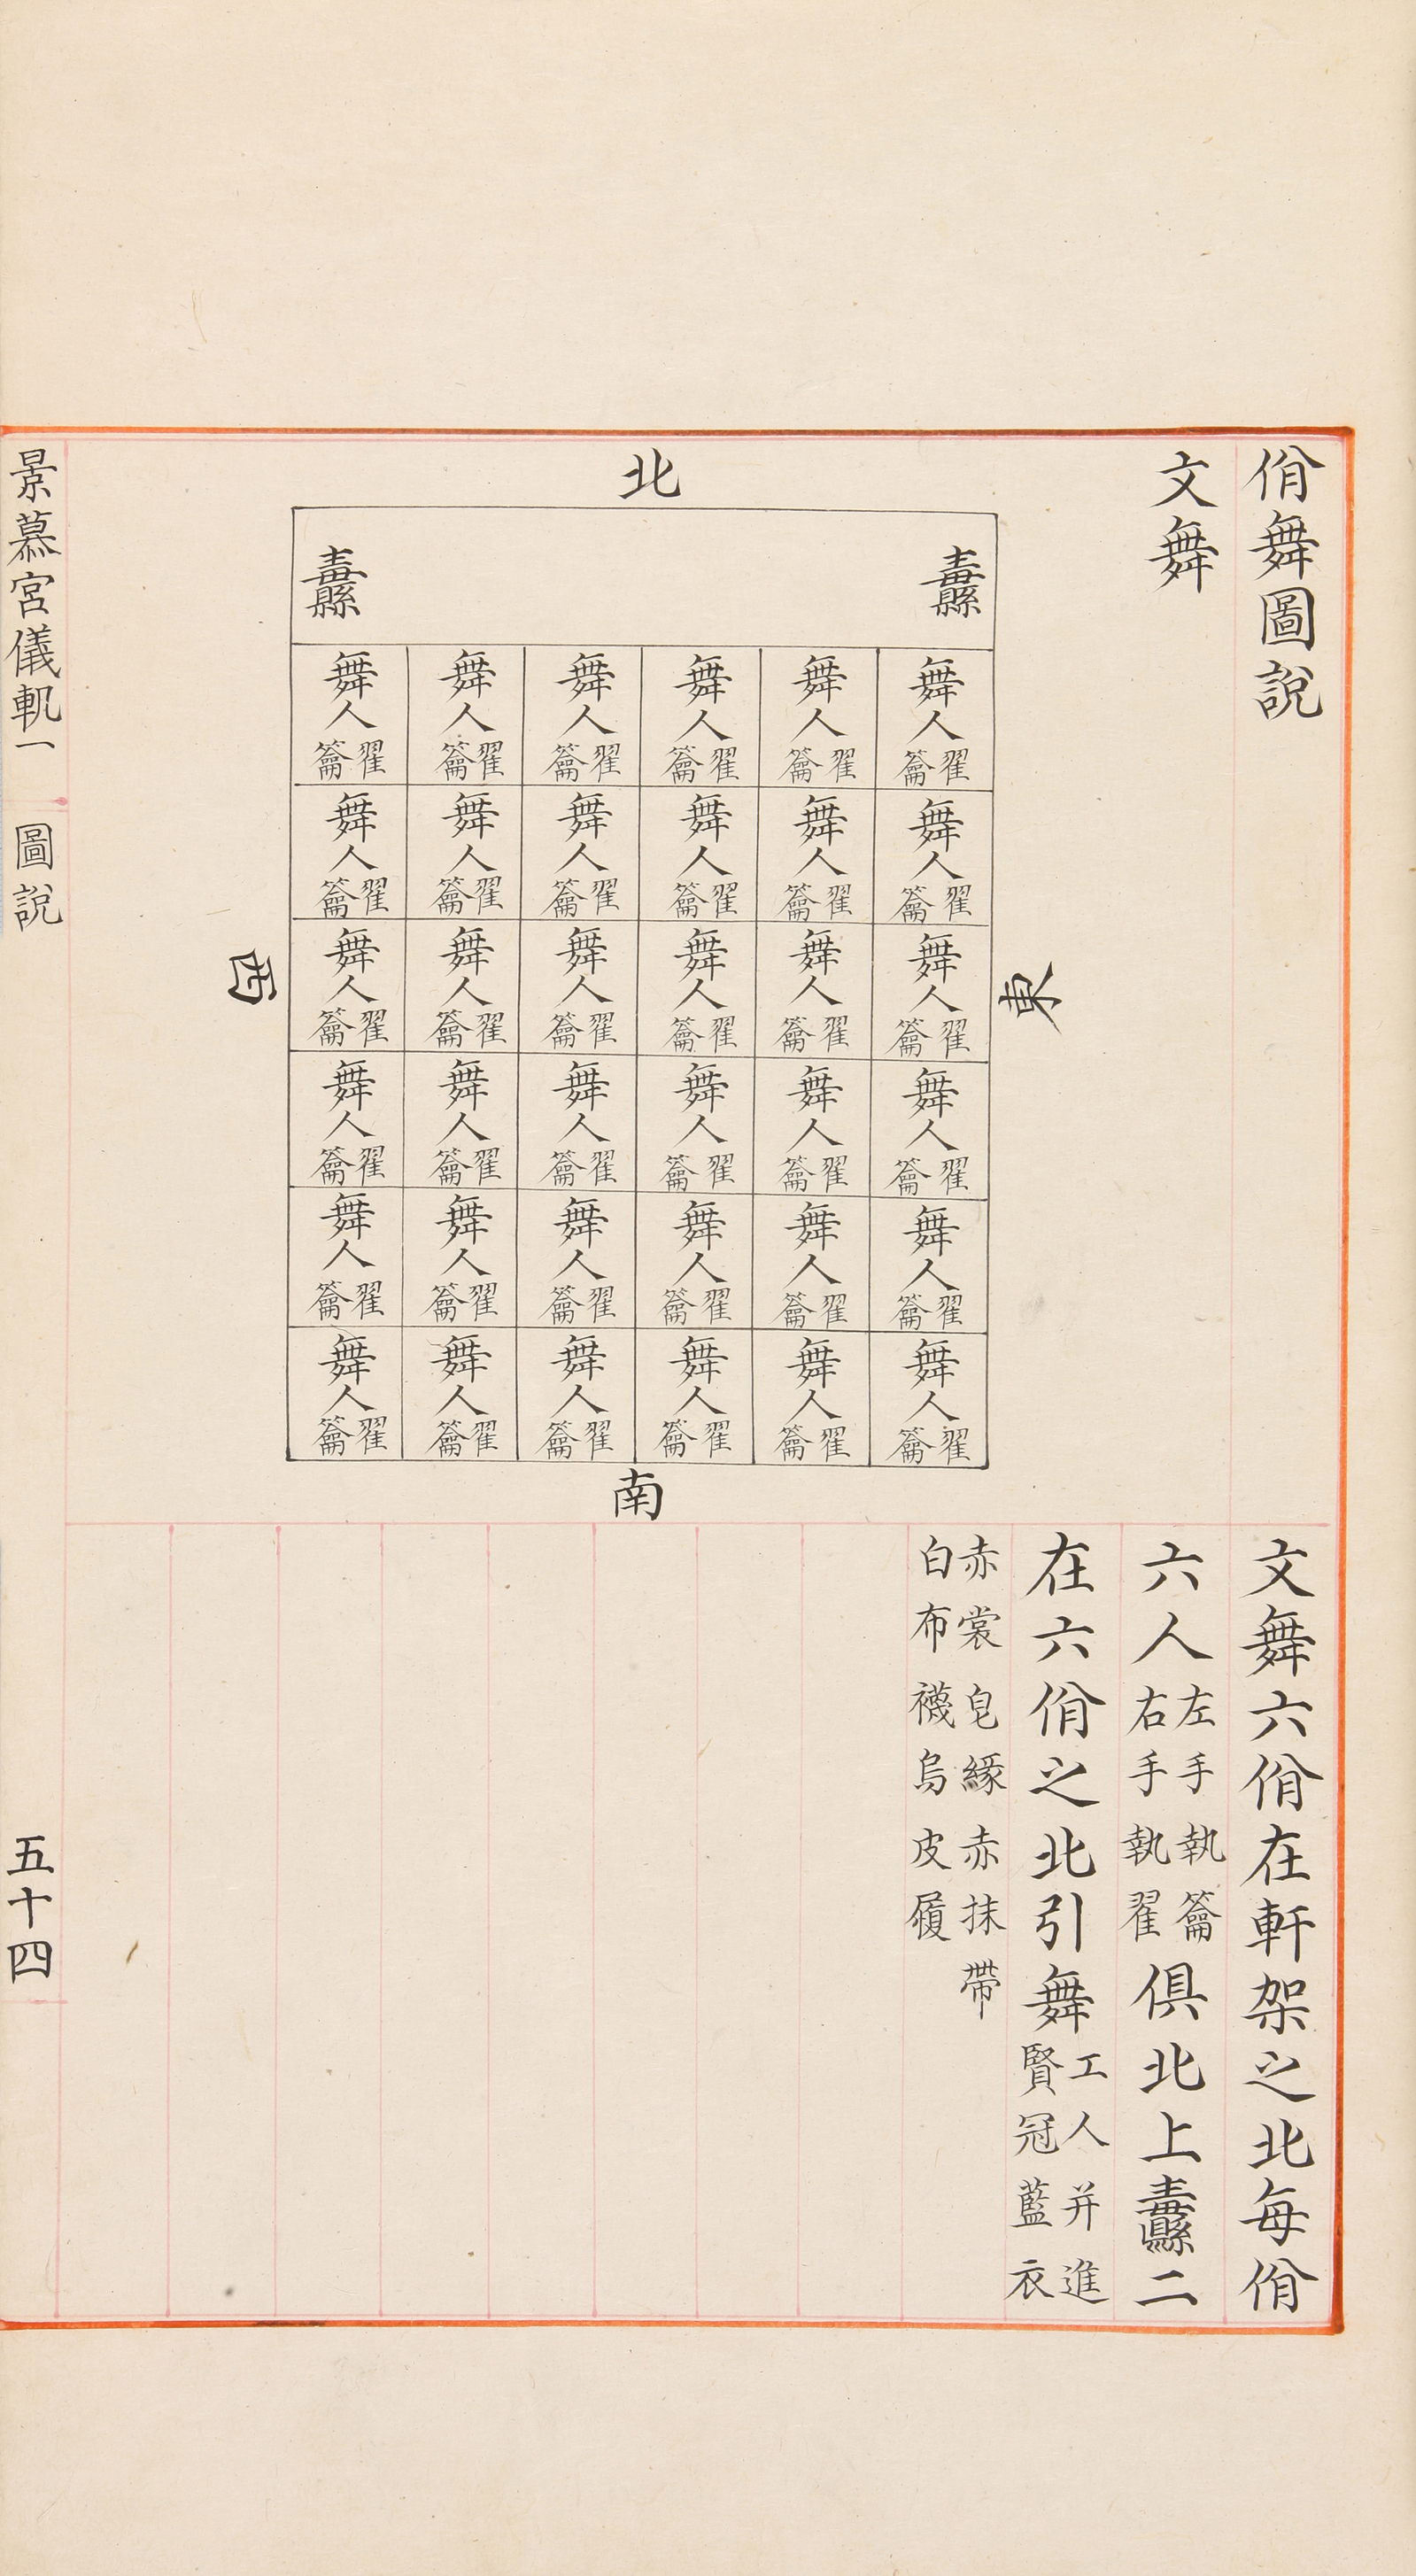 佾舞圖說
文舞
北
纛 纛
舞人翟籥 舞人翟籥 舞人翟籥 舞人翟籥 舞人翟籥 舞人翟籥
舞人翟籥 舞人翟籥 舞人翟籥 舞人翟籥 舞人翟籥 舞人翟籥
舞人翟籥 舞人翟籥 舞人翟籥 舞人翟籥 舞人翟籥 舞人翟籥
舞人翟籥 舞人翟籥 舞人翟籥 舞人翟籥 舞人翟籥 舞人翟籥
舞人翟籥 舞人翟籥 舞人翟籥 舞人翟籥 舞人翟籥 舞人翟籥
舞人翟籥 舞人翟籥 舞人翟籥 舞人翟籥 舞人翟籥 舞人翟籥
東
西
南
文舞六佾在軒架之北每佾
六人左手執籥右手執翟俱北上纛二
在六佾之北引舞工人并進賢冠藍衣
赤裳皂緣赤抹帶
白布襪烏皮履
景慕宮儀軌一 圖說 五十四